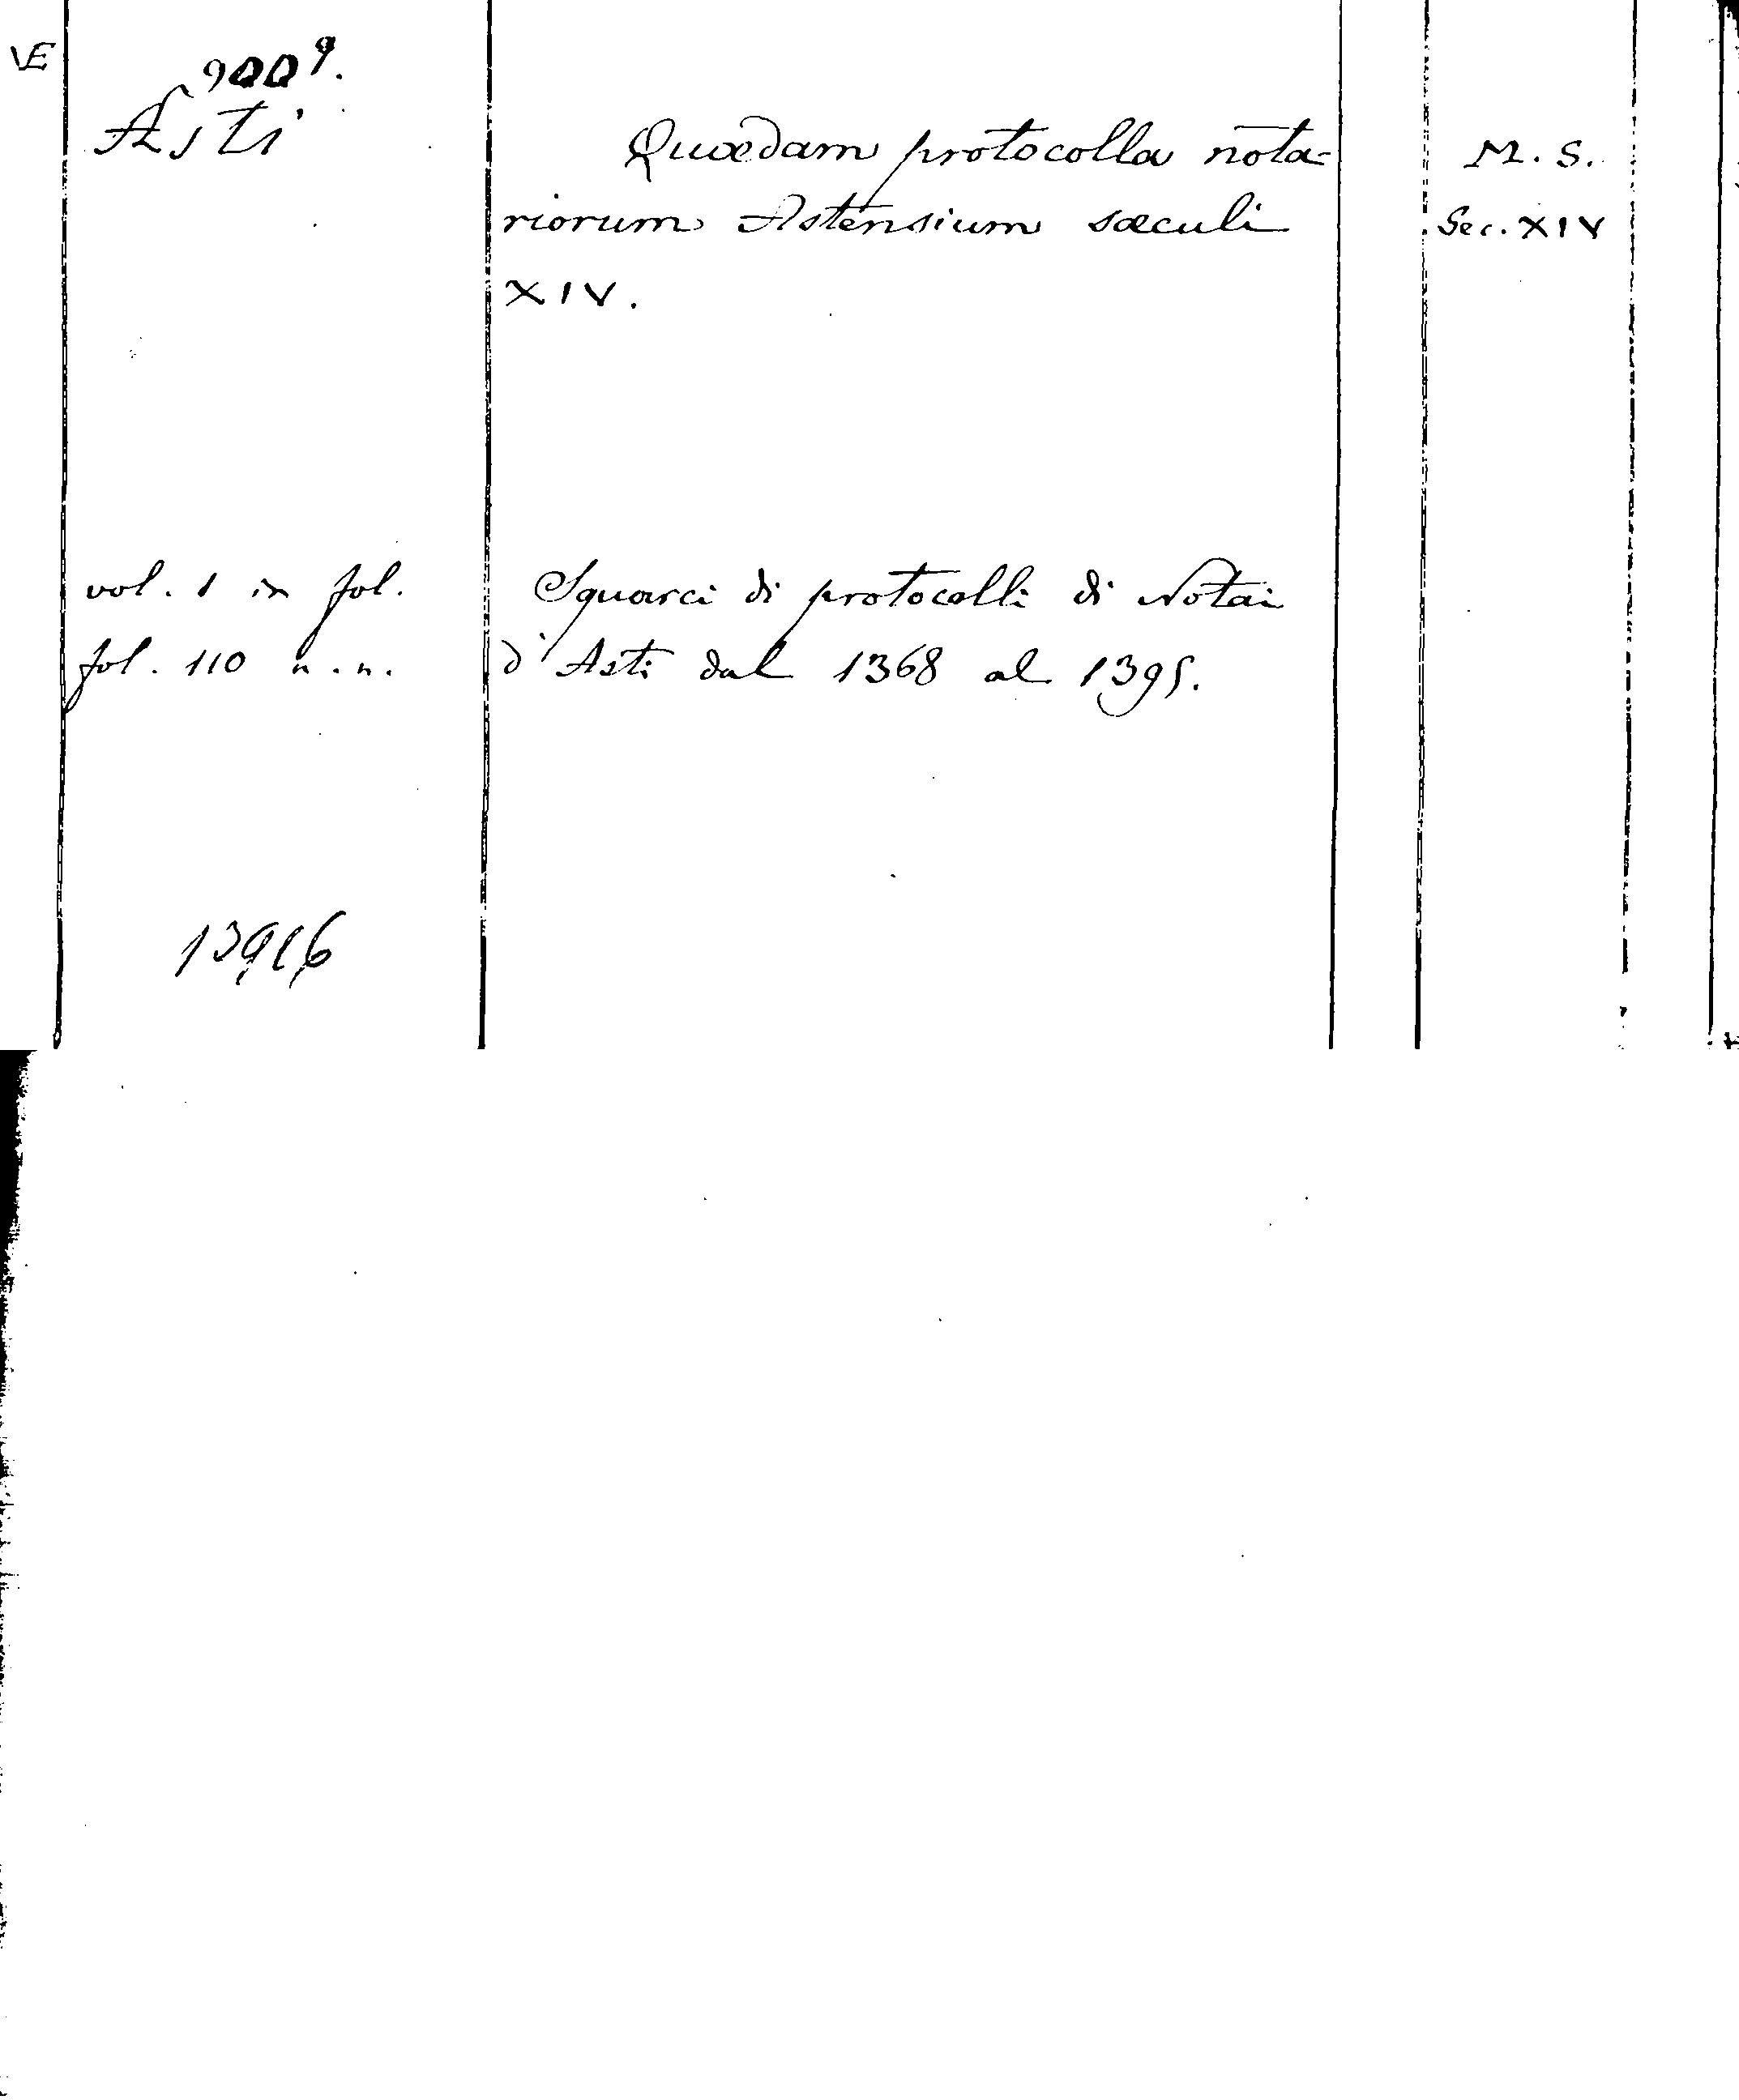 VE
9009.
Asti
Quædam protocolla nota=
riorum Astensium sæculi
XIV.
M. S.
Sec. XIV
vol. 1 in fol.
fol. 110 n.n.
Squarci di protocolli di Notai
d'Asti dal 1368 al 1395.
13916